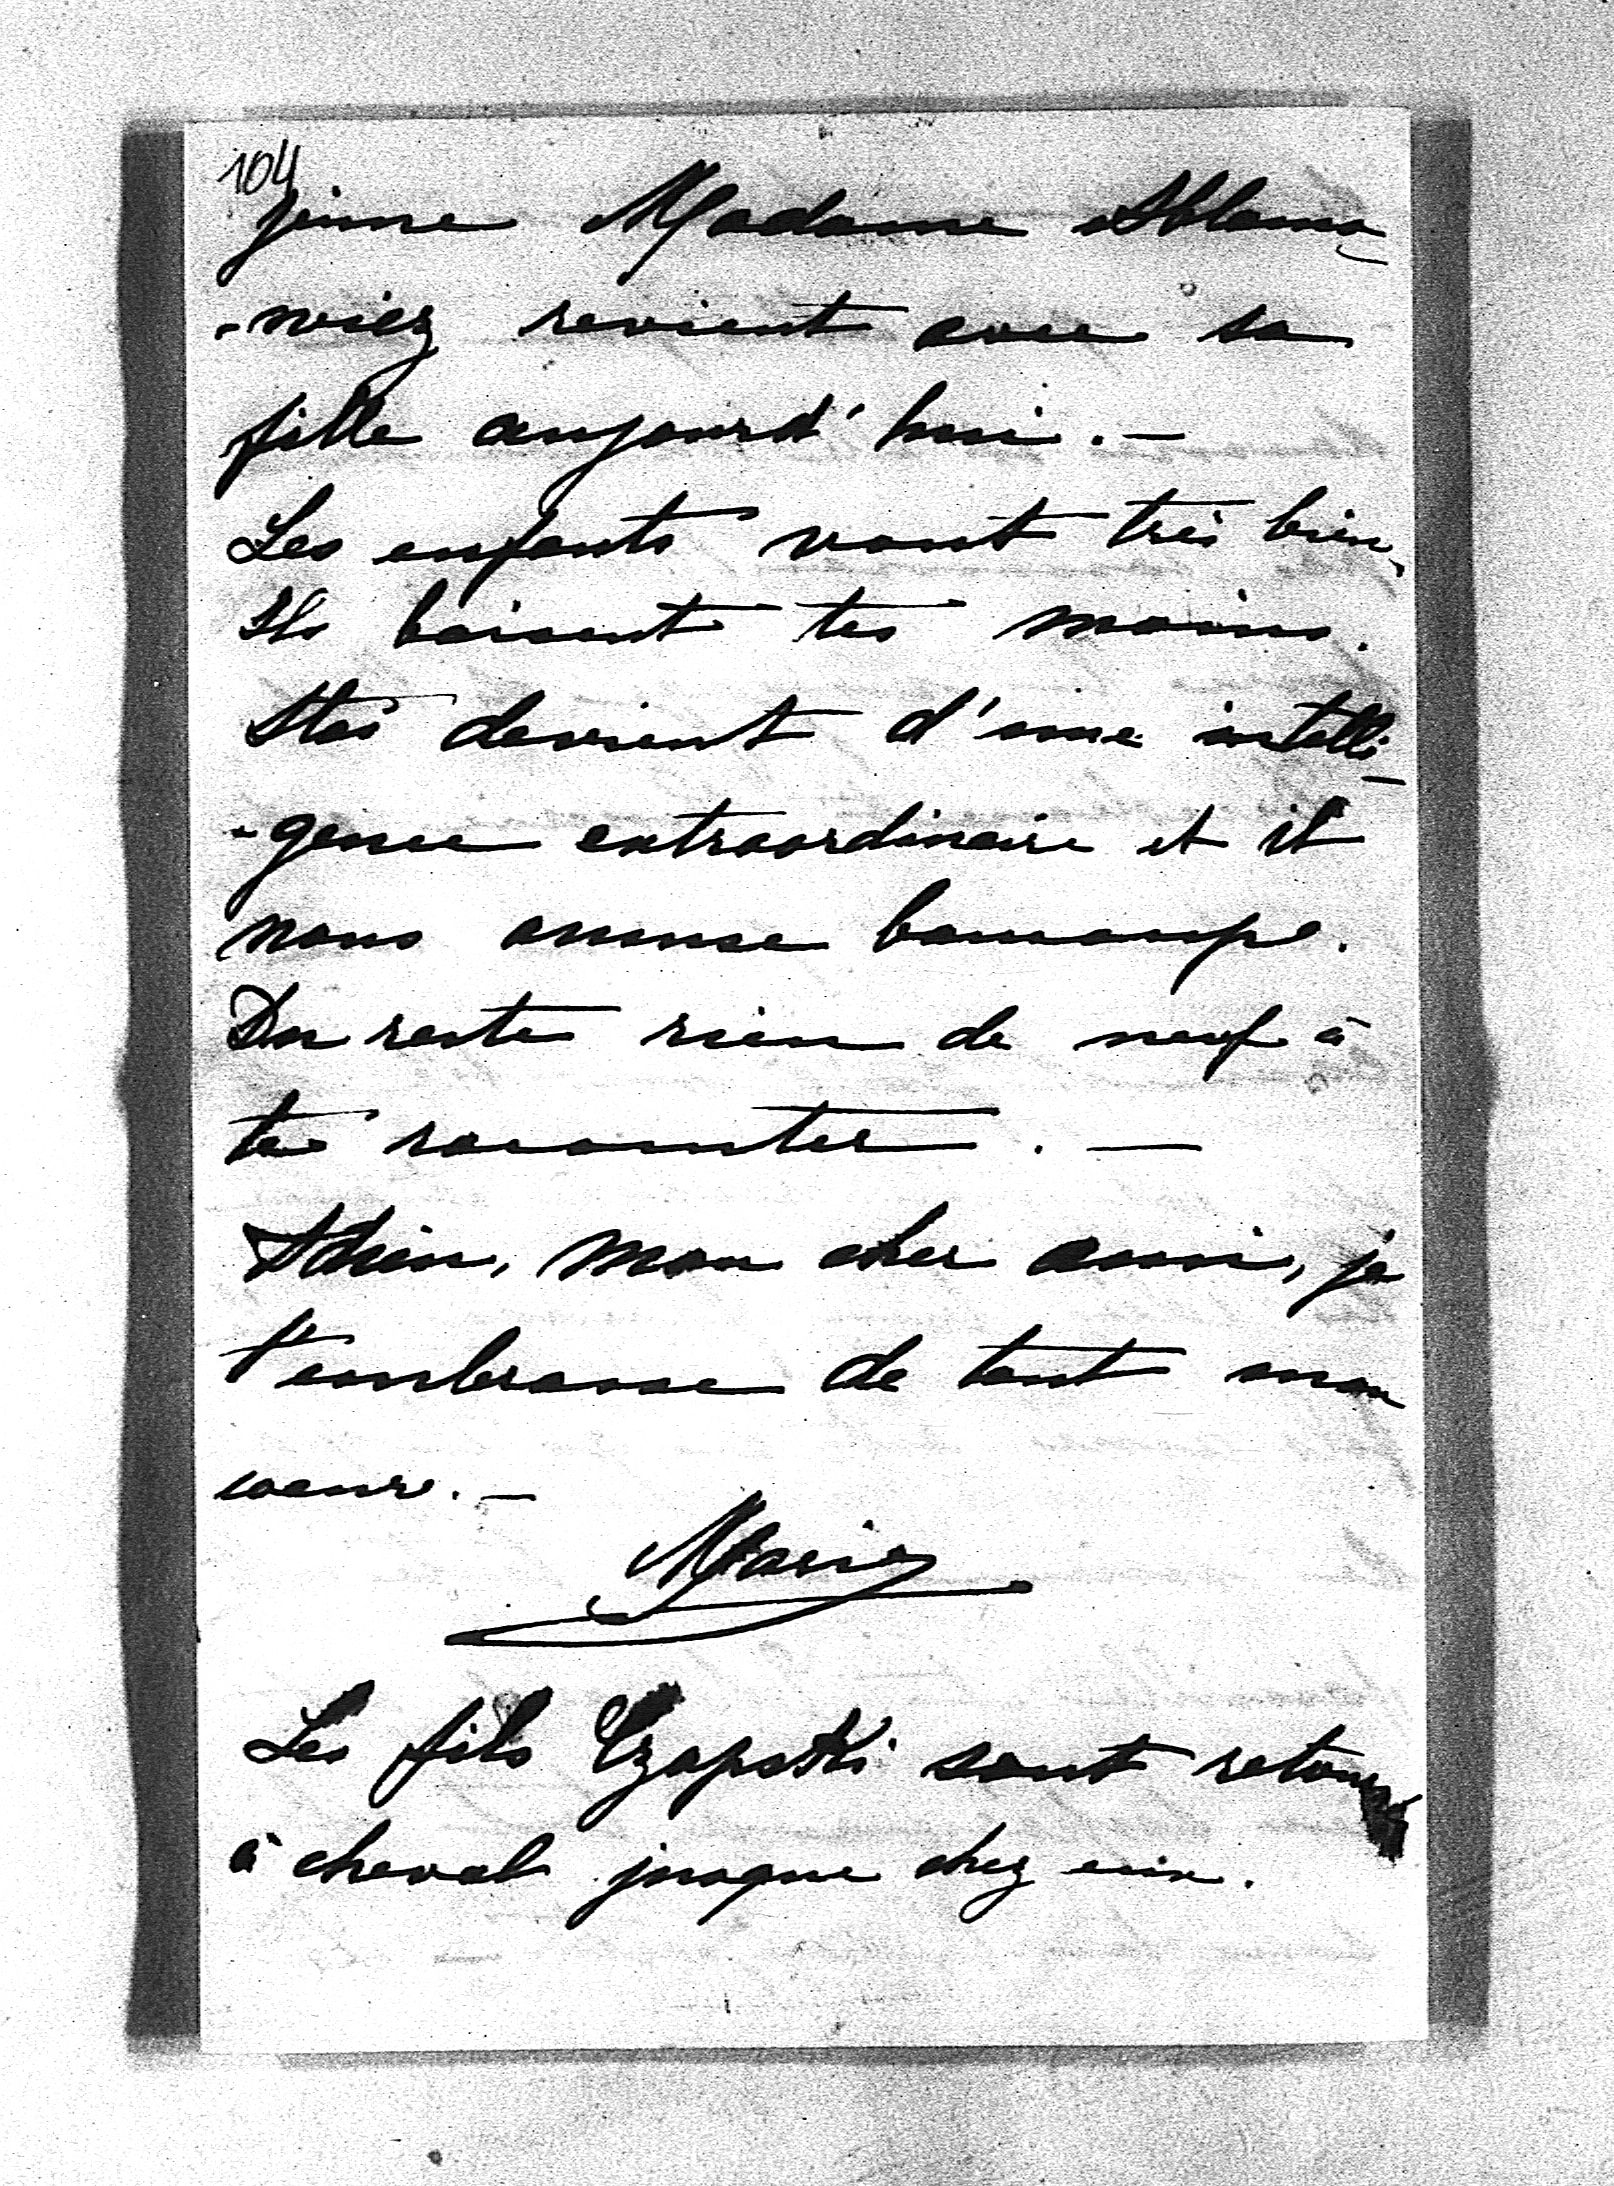 104
jeune Madame Ablamo
-wicz revient avec sa
fille aujourd'hui. —
Les enfants vont très bien,
Ils baisent tes mains.
Stas devient d'une intelli-
-gence extraordinaire et il
nous amuse beaucoup.
Du reste rien de neuf à
te raconter. —
Adieu, mon cher ami, je
t'embrasse de tout mon
coeur. —
Marie
Les fils Czapski sont retourné
à cheval jusque chez eux.